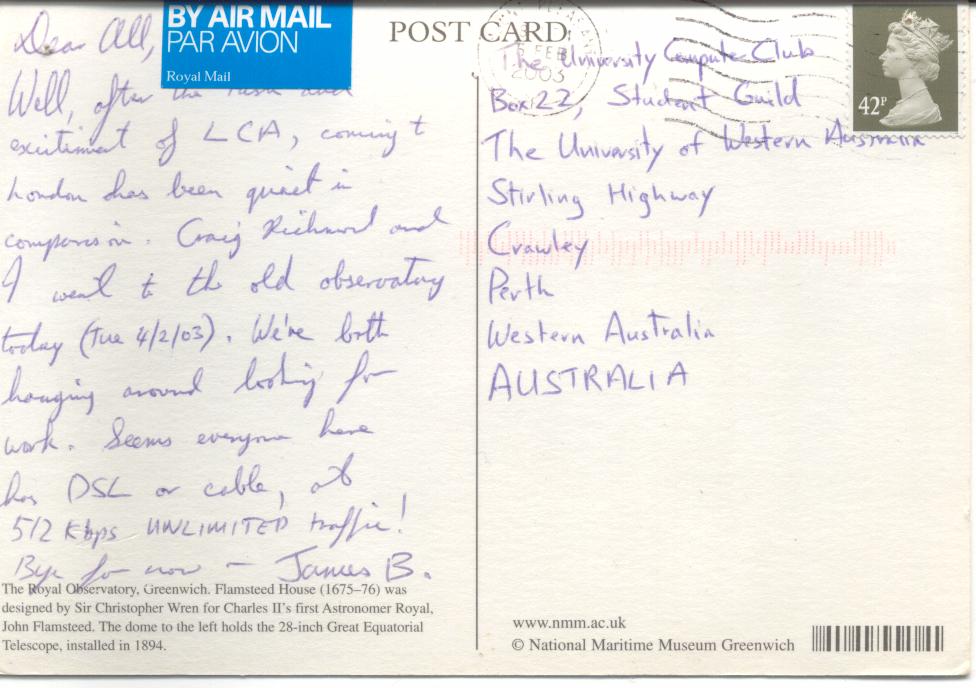 BY AIR MAIL
PAR AVION
Royal Mail
POST CARD
FEB
2003
42P
Dear All,
Well, after the rush and
excitiment of LCA, coming t
London has been quiet in
comparison. Craig Richmond and
I went to the old observatory
today (Tue 4/2/03). We're both
hanging around looking for
work. Seems everyone here
has DSL or cable, at
512 Kbps UNLIMITED traffic!
Bye for now - James B.
The Royal Observatory, Greenwich. Flamsteed House (1675–76) was
designed by Sir Christopher Wren for Charles II's first Astronomer Royal,
John Flamsteed. The dome to the left holds the 28-inch Great Equatorial
Telescope, installed in 1894.
The University Computer Club
Box 22, Student Guild
The University of Western Australia
Stirling Highway
Crawley
Perth
Western Australia
AUSTRALIA
www.nmm.ac.uk
© National Maritime Museum Greenwich